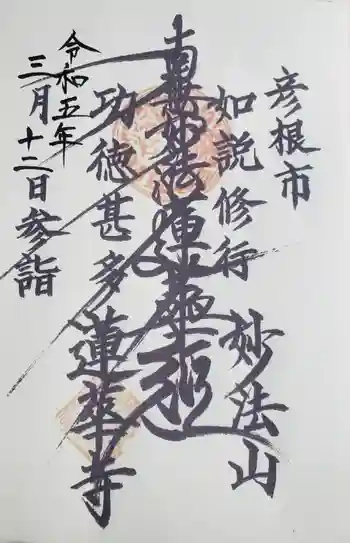 彦根市
如説修行
妙法山
南無妙法蓮華経
功徳甚多
蓮華寺
令和五年
三月十二日参詣